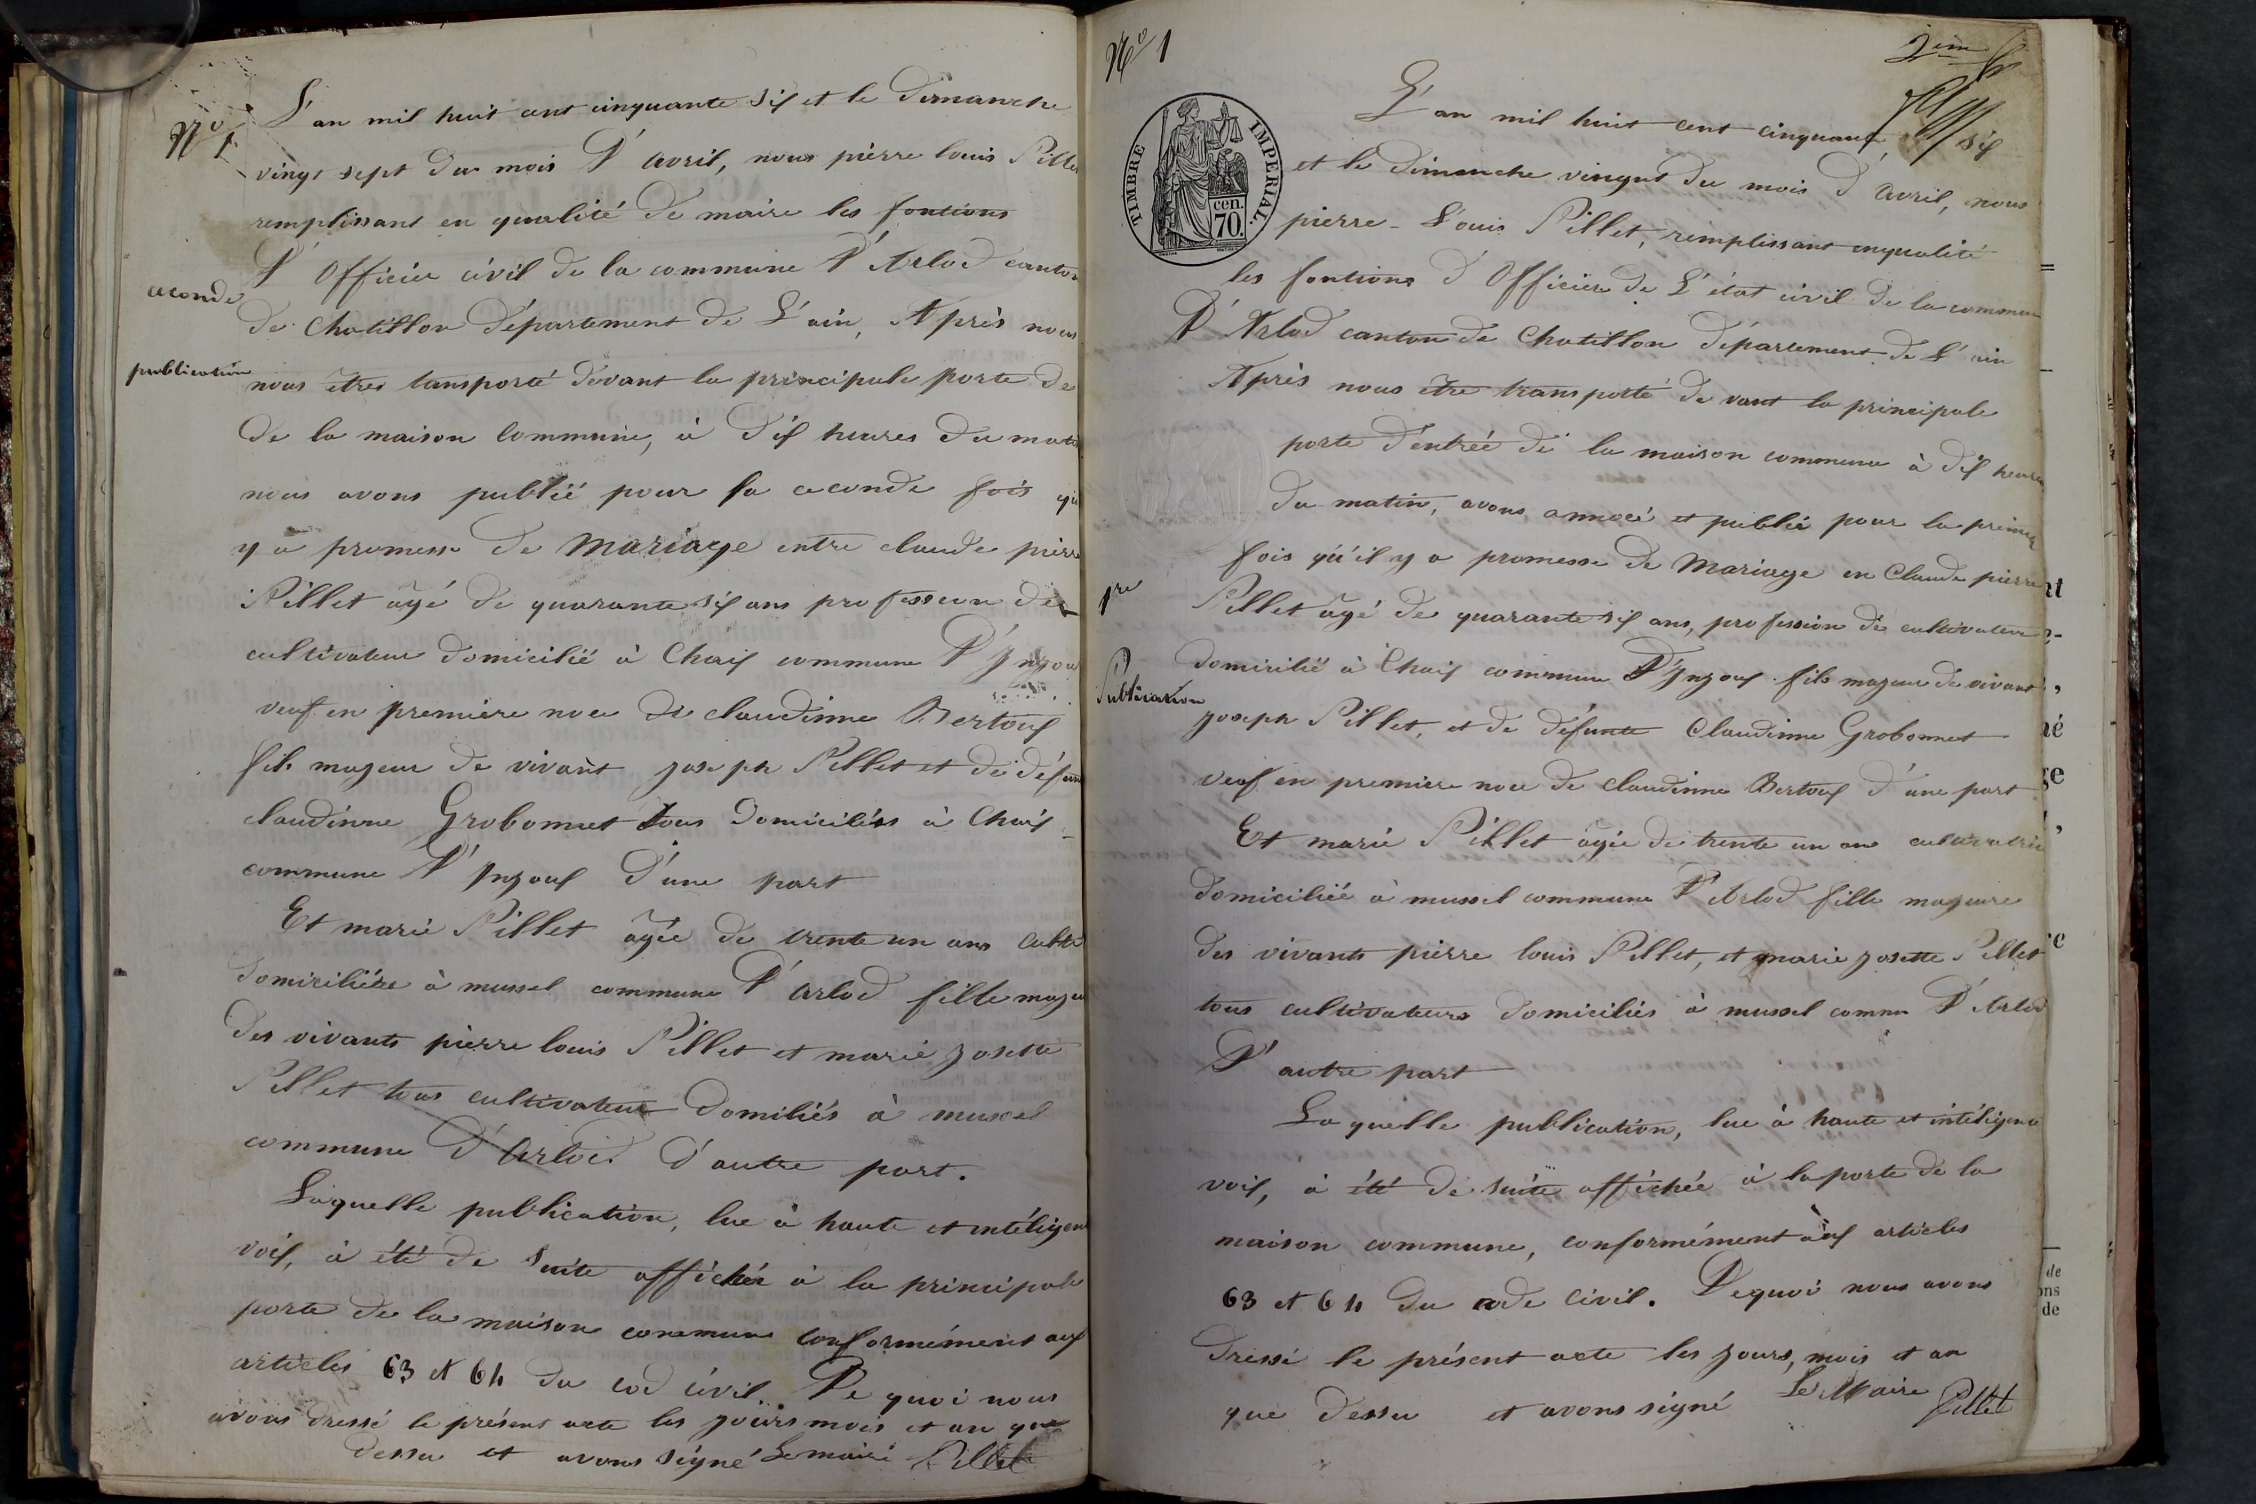 N° 1
L'an mil huit cent cinquante six et le Dimanche
vingt sept du mois D'avril, nous pierre louis Pillet
remplissant en qualité de maire les fontions
D'Officier civil de la commune D'Arlod canton
aconde
de Chatillon Département de L'ain, Après nous
publication
nous êtres tansporté devant la principale porte de
de la maison commune, à dix heures du matin
nous avons publié pour la ceconde fois qu
y a promesse de Mariage entre claude pierre
Pillet âgé de quarante six ans profession de
cultivateur domicilié à Chaix commune D'Jnjoux
veuf en première noce de claudinne Bertoux
fils majeur de vivant joseph Pillet et de défunte
claudinne Grobonnet tous domiciliés à Chaix
commune D'Jnjoux d'une part
Et marie Pillet âgée de trente un ans cultiv
domiciliée à mussel commune D'arlod fille majeu
des vivants pierre louis Pillet et marie josette
Pillet tous cultivateur domiliés à mussel
commune d'Arlod d'autre part.
Laquelle publication, lue à haute et intéligen
voix, à été de suite affichée à la principale
porte de la maison commune conformément aux
articles 63 et 64 du cod civil. De quoi nous
avons dressé le présent acte les jours mois et an que
dessu et avons signé Le maire Pillet
N° 1
2ème
L'an mil huit cent cinquante six
TIMBRE IMPERIAL.
cen. 70.
et le dimanche vingnt du mois d'avril, nous
pierre-Louis Pillet, remplissant enqualité
les fontions d'Officier de L'état civil de la commun
D'Arlod canton de Chatillon département de L'ain
Après nous être transpotté devant la principale
porte d'entrée de la maison commune à dix heures
du matin, avons annocé et publié pour la premier
fois qu'il y a promesse de Mariage en Claude pierre
pre
Pillet âgé de quarante six ans, profession de cultivateur
Publication
domicilié à Chaix commune D'Jnjoux fils majeur de vivant
joseph Pillet, et de défunte Claudinne Grobonnet
veuf en première noce de claudinne Bertoux d'une part
Et marie Pillet âgée de trente un ans cultivatrice
domiciliée à mussel commune D'Arlod fille majeure
des vivants pierre louis Pillet, et marie josette Pillet
tous cultivateurs domiciliés à mussel commu D'Arlod
D'autre part
Laquelle publication, lue à haute et intéligene
voix, à été de suite affichée à la porte de la
maison commune, conformément aux articles
63 et 64 du code civil. Dequoi nous avons
dressé le présent acte les jours, mois et an
que dessu et avons signé Le Maire Pillet